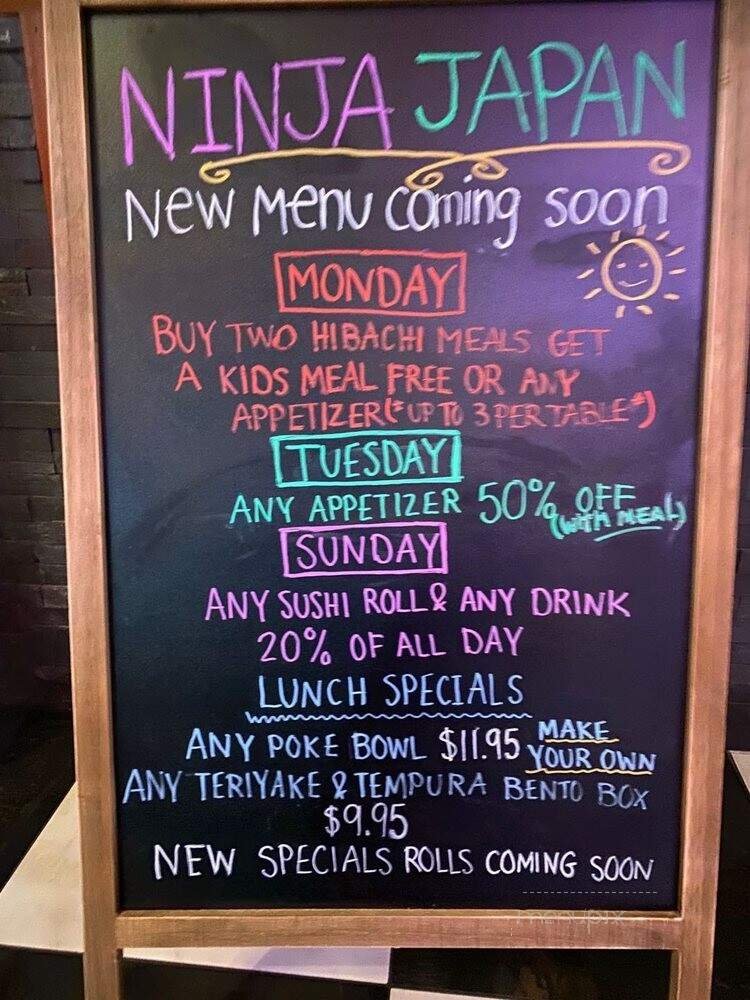 NINJA JAPAN
New Menu Coming soon
MONDAY
BUY TWO HIBACHI MEALS GET
A KIDS MEAL FREE OR ANY
APPETIZER(*UP TO 3 PER TABLE*)
TUESDAY
ANY APPETIZER 50% OFF
(WITH MEAL)
SUNDAY
ANY SUSHI ROLL & ANY DRINK
20% OF ALL DAY
LUNCH SPECIALS
ANY POKE BOWL $11.95 MAKE
YOUR OWN
ANY TERIYAKE & TEMPURA BENTO BOX
$9.95
NEW SPECIALS ROLLS COMING SOON
menupix